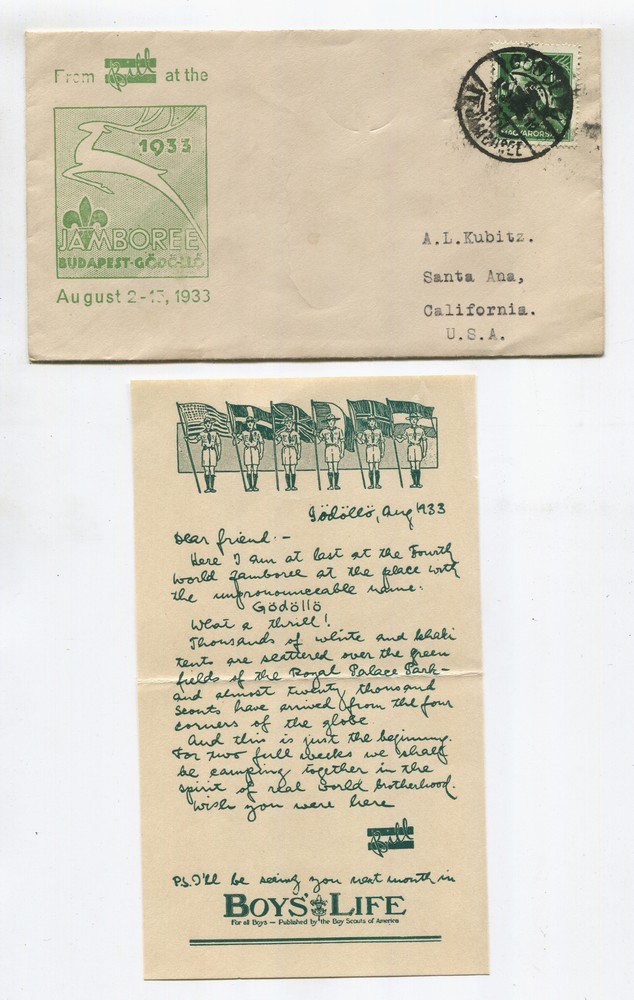 From Bill at the
1933
JAMBOREE
BUDAPEST-GÖDÖLLŐ
August 2-15, 1933
MAGYARORSZ
A.L.Kubitz.
Santa Ana,
California.
U.S.A.
Gödöllö, Aug 1933
Dear friend:-
Here I am at last at the Fourth
World Jamboree at the place with
the unpronounceable name:
Gödöllö
What a thrill!
Thousands of white and khaki
tents are scattered over the green
fields of the Royal Palace Park-
and almost twenty thousand
Scouts have arrived from the four
corners of the globe
And this is just the beginning.
For two full weeks we shall
be camping together in the
spirit of real world brotherhood.
Wish you were here
Bill
PS. I'll be seeing you next month in
BOYS' LIFE
For all Boys — Published by the Boy Scouts of America